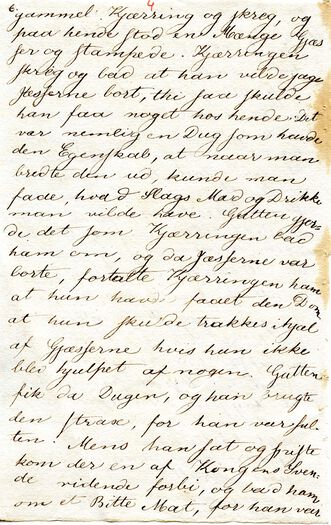 6. 4
gammel Kjærring og skreg, og
paa hende stod en Mængde Gjæs
ser og stampede. Kjærringen
skreg og bad at han vilde jage
Gjæsserne bort, thi saa skulde
han faa noget hos hende. Det
var nemlig en Dug som havde
den Egenskab, at naar man
bredte den ud, kunde man
faae, hvad Slags Mad og Drikke
man vilde have. Gutten gjor-
de det som Kjærringen bad
ham om, og da Gjæsserne var
borte, fortalte Kjærringen ham
at hun havde faaet den Dom
at hun skulde trakkes ihjel
af Gjæsserne hvis han ikke
blev hjulpet af nogen. Gutten
fik da Dugen, og han brugte
den strax, for han var sul-
ten. Mens han sat og spiste
kom der en af Kongens Sven-
de ridende forbi, og bad ham
om et Bitte Mat, for han var